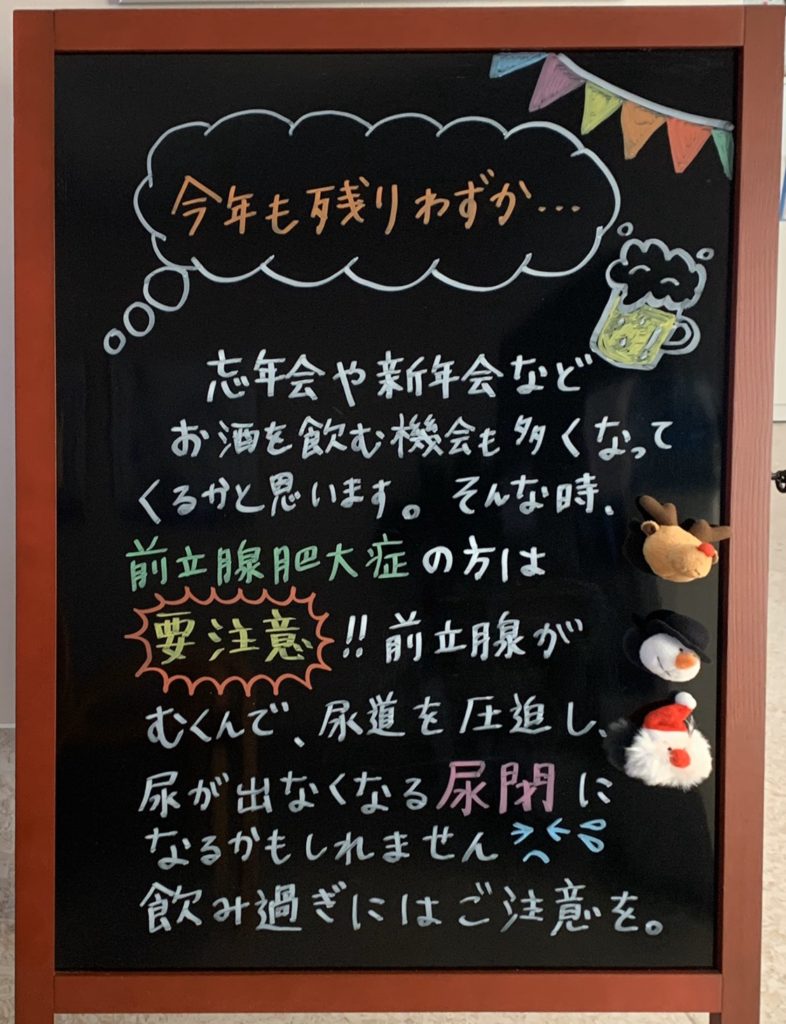 今年も残りわずか…
忘年会や新年会など
お酒を飲む機会も多くなって
くるかと思います。そんな時、
前立腺肥大症の方は
要注意!!前立腺が
むくんで、尿道を圧迫し、
尿が出なくなる尿閉に
なるかもしれません
飲み過ぎにはご注意を。